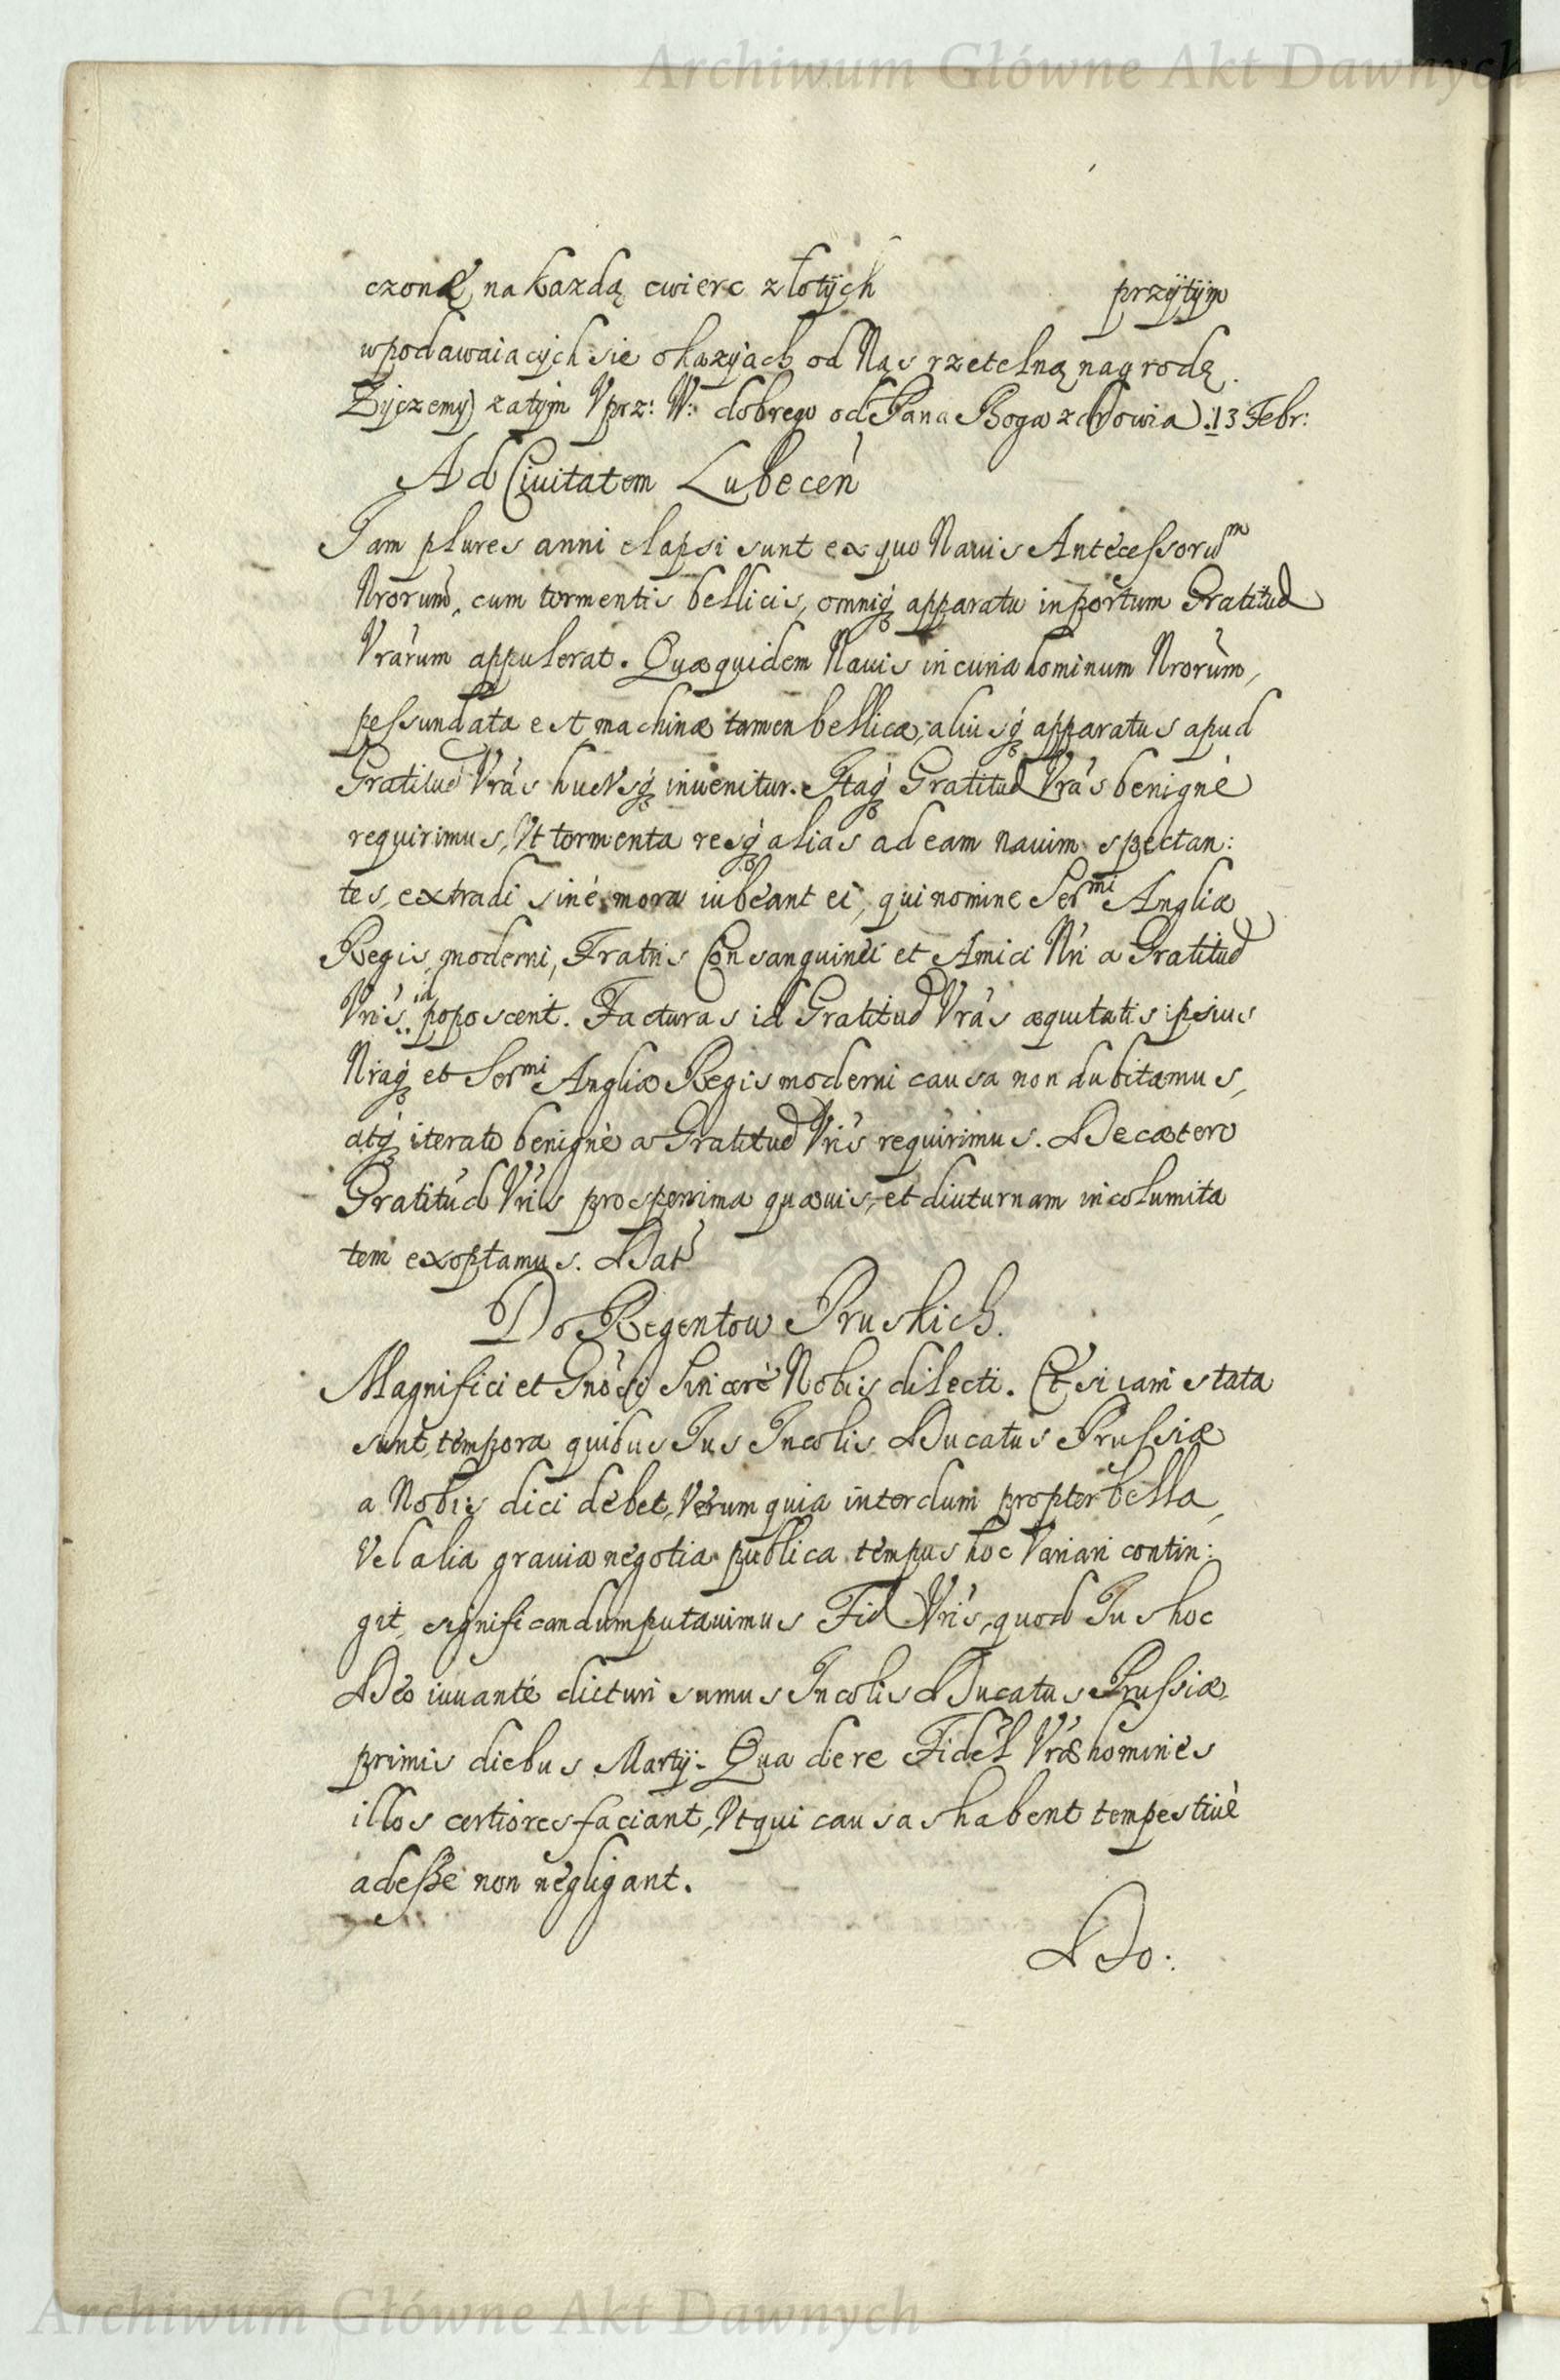 Archiwum Główne Akt Dawnych
czonę na każdą cwierc złotych przytym
wpodawaiacych sie okazyach od Nas rzetelną nagrodę.
Zyczemy zatym Vprz: W: dobrego od Pana Boga zdrowia. 13 Febr:
Ad Ciuitatem Lubecen
Iam plures anni elapsi sunt ex quo Nauis Antecessorum
Nrorum, cum tormentis bellicis, omniq apparatu in portum Gratitud
Vrarum appulerat. Quæ quidem Nauis incuria hominum Nrorum,
pessundata est, machinæ tamen bellicæ, aliusq apparatus apud
Gratitud Vras hucvsq inuenitur. Itaq Gratitud Vras benignè
requirimus, Vt tormenta resq alias ad eam nauim spectan:
tes, extradi sine mora iubeant ei, qui nomine Sermi Angliæ
Regis moderni, Fratris Consanguinei et Amici Nri a Gratitud
Vris id poposcerit. Facturas id Gratitud Vras æquitatis ipsius
Nraq et Sermi Angliæ Regis moderni causa non dubitamus,
atq iterato benignè a Gratitud Vris requirimus. De cætero
Gratitud Vris prosperrima quæuis, et diuturnam incolumita
tem exoptamus. Dat
Do Regentow Pruskich.
Magnifici et Gnosi Sincerè Nobis dilecti. Etsi iam stata
sunt tempora quibus Ius Incolis Ducatus Prussiæ
a Nobis dici debet, Verum quia interdum propter bella,
Vel alia grauia negotia publica tempus hoc Variari contin:
git, significandum putauimus Fid Vris, quod Ius hoc
Deo iuuante dicturi sumus Incolis Ducatus Prussiæ
primis diebus Martij. Qua de re Fidel Vræ homines
illos certiores faciant, Vt qui causas habent tempestiuè
adesse non negligant.
Do:
Archiwum Główne Akt Dawnych